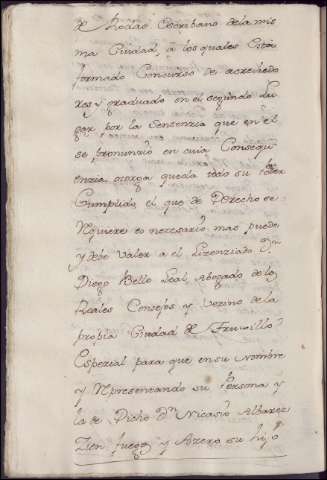 de Thodao Escribano de la mis
ma Ciudad, a los quales Está
formado Concurso de acrehedo
res y graduado en el segundo Lu
gar, por la Sentenzia que en el
se pronunzio en cuia Consequ
enzia otorga que da todo su Poder
Cumplido, el que de Derecho se
requiere es nezesario mas, puede,
y deve Valer a el Lizenziado Dn
Diego Bello Leal Abogado de los
Reales Consejos y Vezino de la
propia Ciudad de Truxillo
Espezial para que en su Nombre
y Representando su Persona y
la de Dicho Dn Nicasio Albarez
Zien fuegos y Azero su hijo